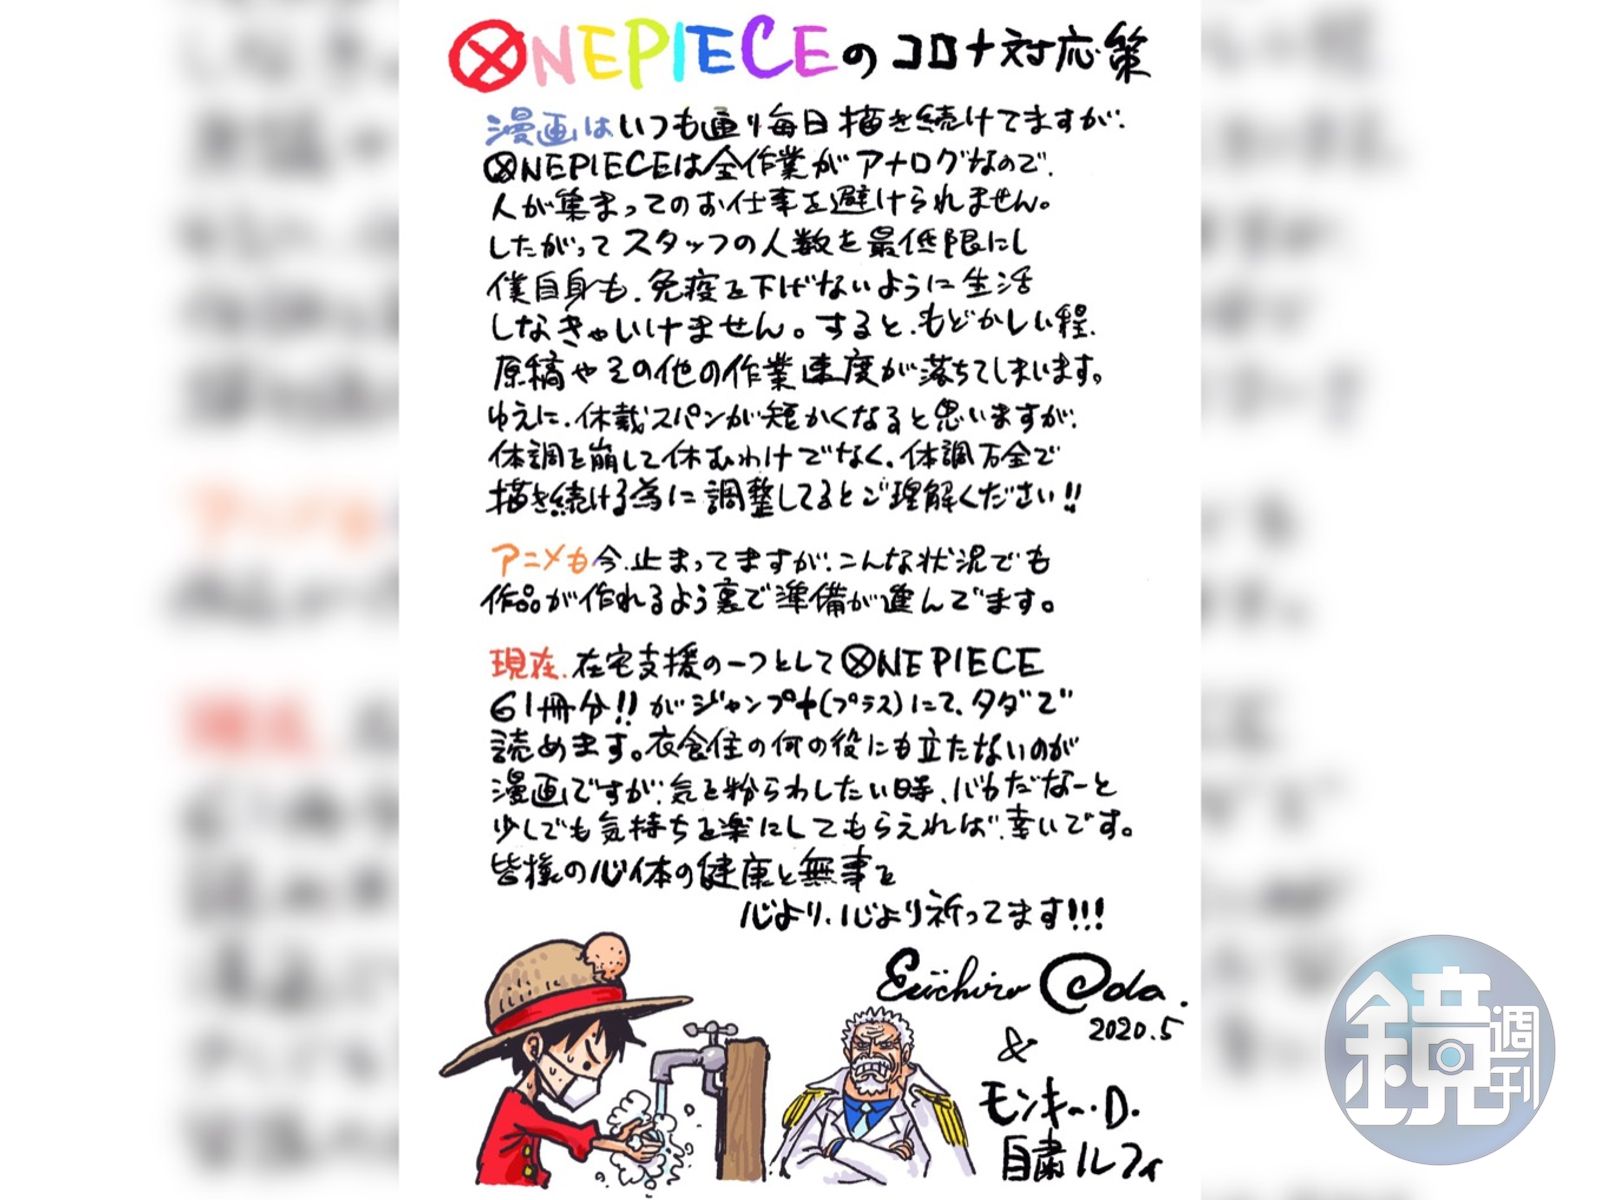 ONE PIECEのコロナ対応策
漫画はいつも通り毎日描き続けてますが、
ONE PIECEは全作業がアナログなので、
人が集まってのお仕事を避けられません。
したがってスタッフの人数を最低限にし
僕自身も、免疫を下げないように生活
しなきゃいけません。すると、もどかしい程、
原稿やその他の作業速度が落ちてしまいます。
ゆえに、休載スパンが短かくなると思いますが、
体調を崩して休むわけでなく、体調万全で
描き続ける為に調整してるとご理解ください!!
アニメも今、止まってますが、こんな状況でも
作品が作れるよう裏で準備が進んでます。
現在、在宅支援の一つとしてONE PIECE
61冊分!!がジャンプ+(プラス)にて、タダで
読めます。衣食住の何の役にも立たないのが
漫画ですが、気を紛らわしたい時、バカだなーと
少しでも気持ちを楽にしてもらえれば、幸いです。
皆様の心体の健康と無事を
心より、心より祈ってます!!!
Eiichiro Oda.
2020.5
&
モンキー・D・
自粛ルフィ
鏡週刊